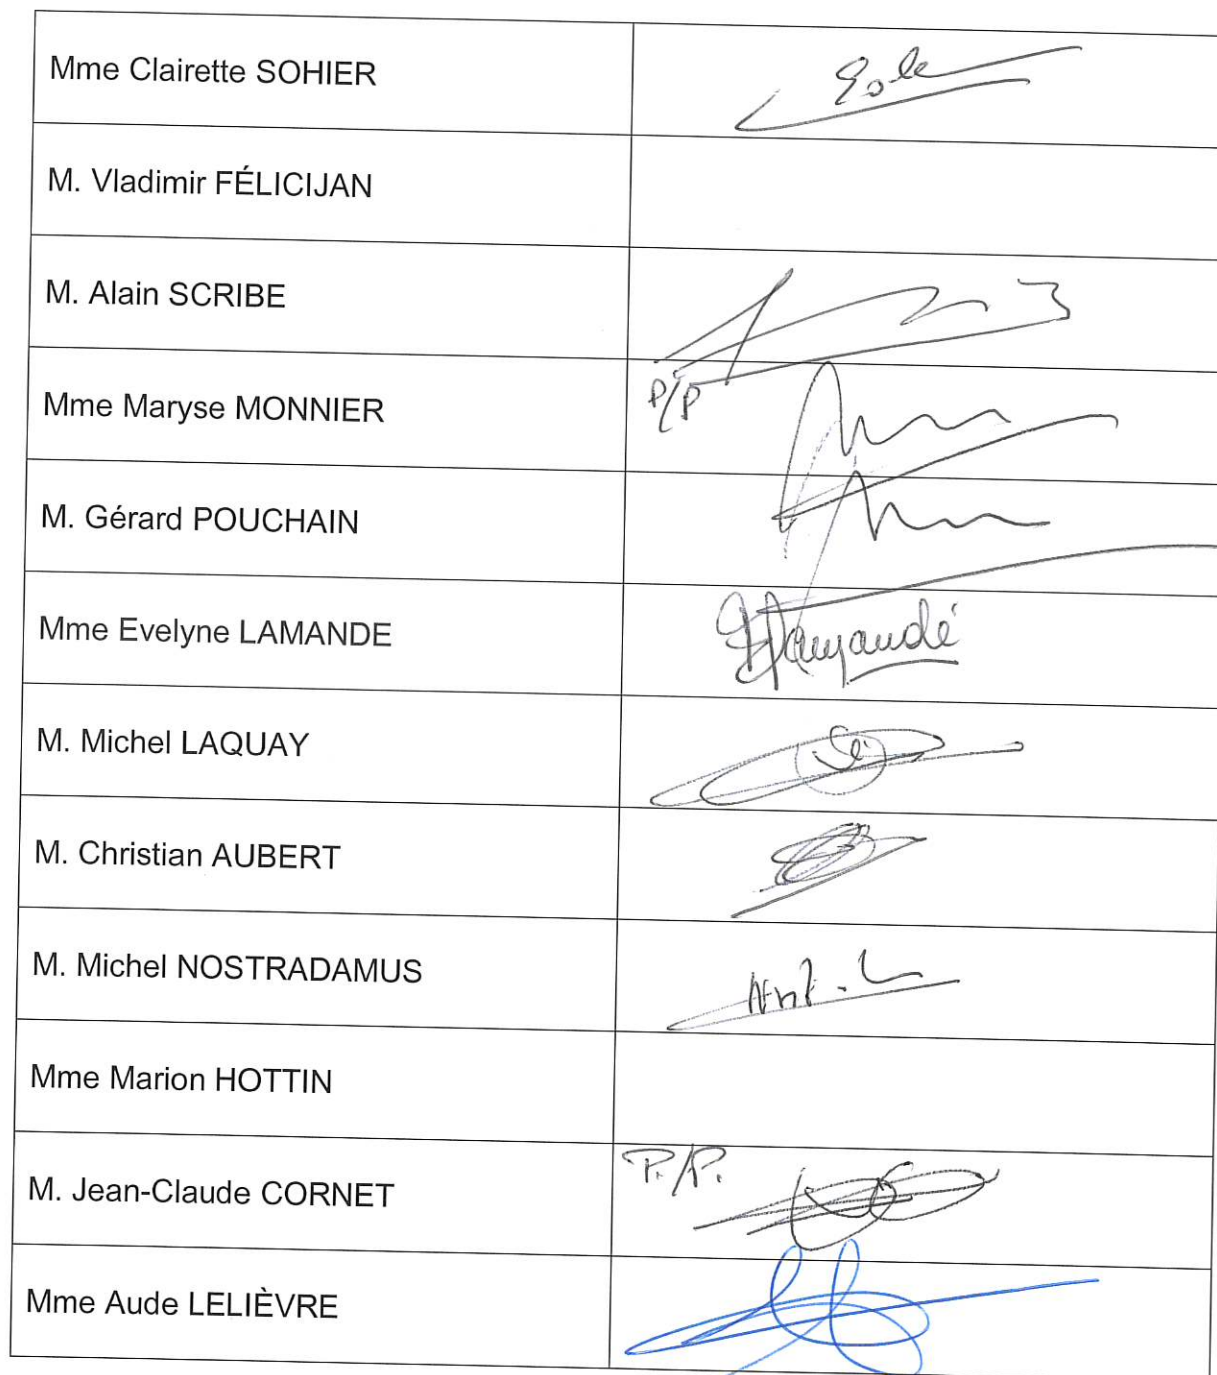 Mme Clairette SOHIER
M. Vladimir FÉLICIJAN
M. Alain SCRIBE
Mme Maryse MONNIER
P/P
M. Gérard POUCHAIN
Mme Evelyne LAMANDE
M. Michel LAQUAY
M. Christian AUBERT
M. Michel NOSTRADAMUS
Mme Marion HOTTIN
M. Jean-Claude CORNET
P./P.
Mme Aude LELIÈVRE